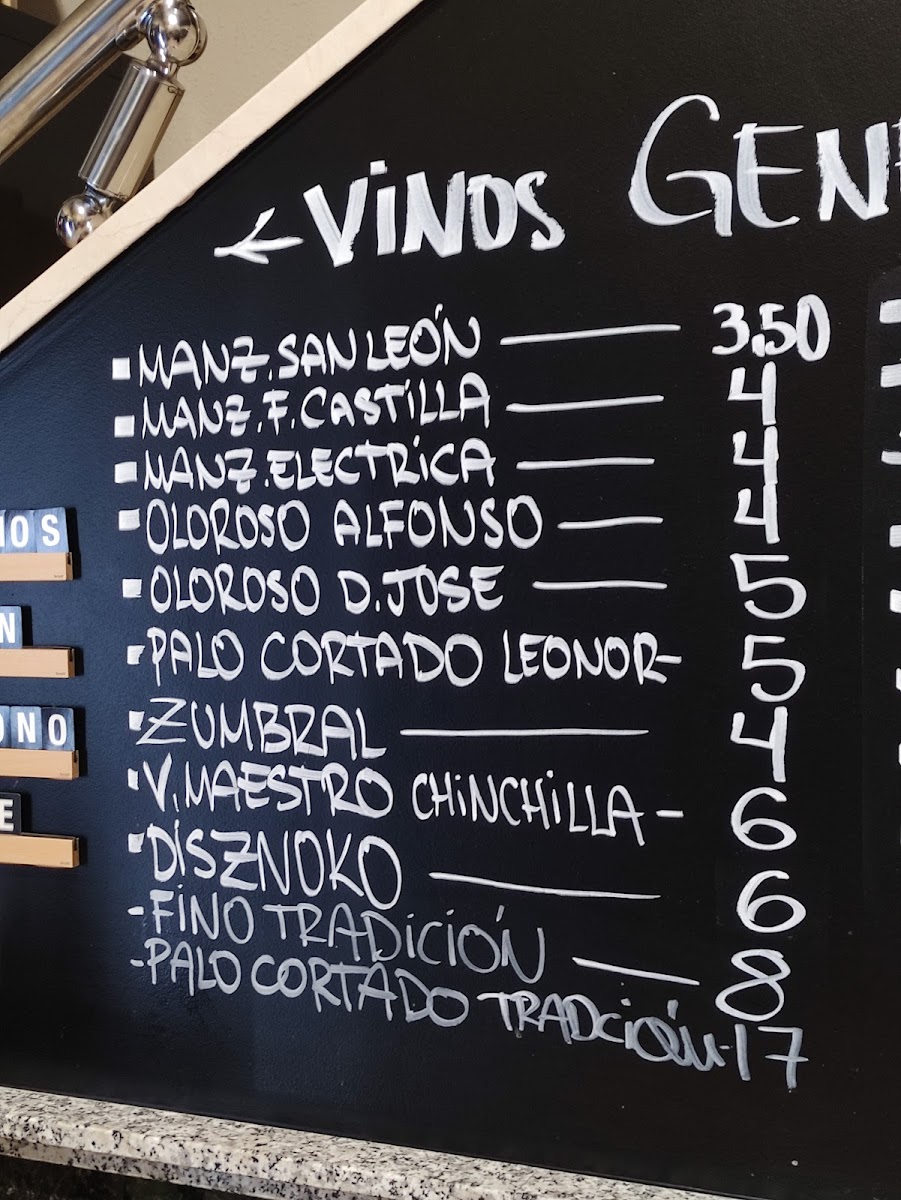 ← VINOS GEN
MANZ. SAN LEÓN — 3.50
MANZ. F. CASTILLA — 4
MANZ. ELECTRICA — 4
OLOROSO ALFONSO — 4
OLOROSO D. JOSE — 5
PALO CORTADO LEONOR - 5
ZUMBRAL — 4
V. MAESTRO CHINCHILLA - 6
DISZNOKO — 6
- FINO TRADICIÓN — 8
- PALO CORTADO TRADCIÓN - 17
IOS
N
ONO
E